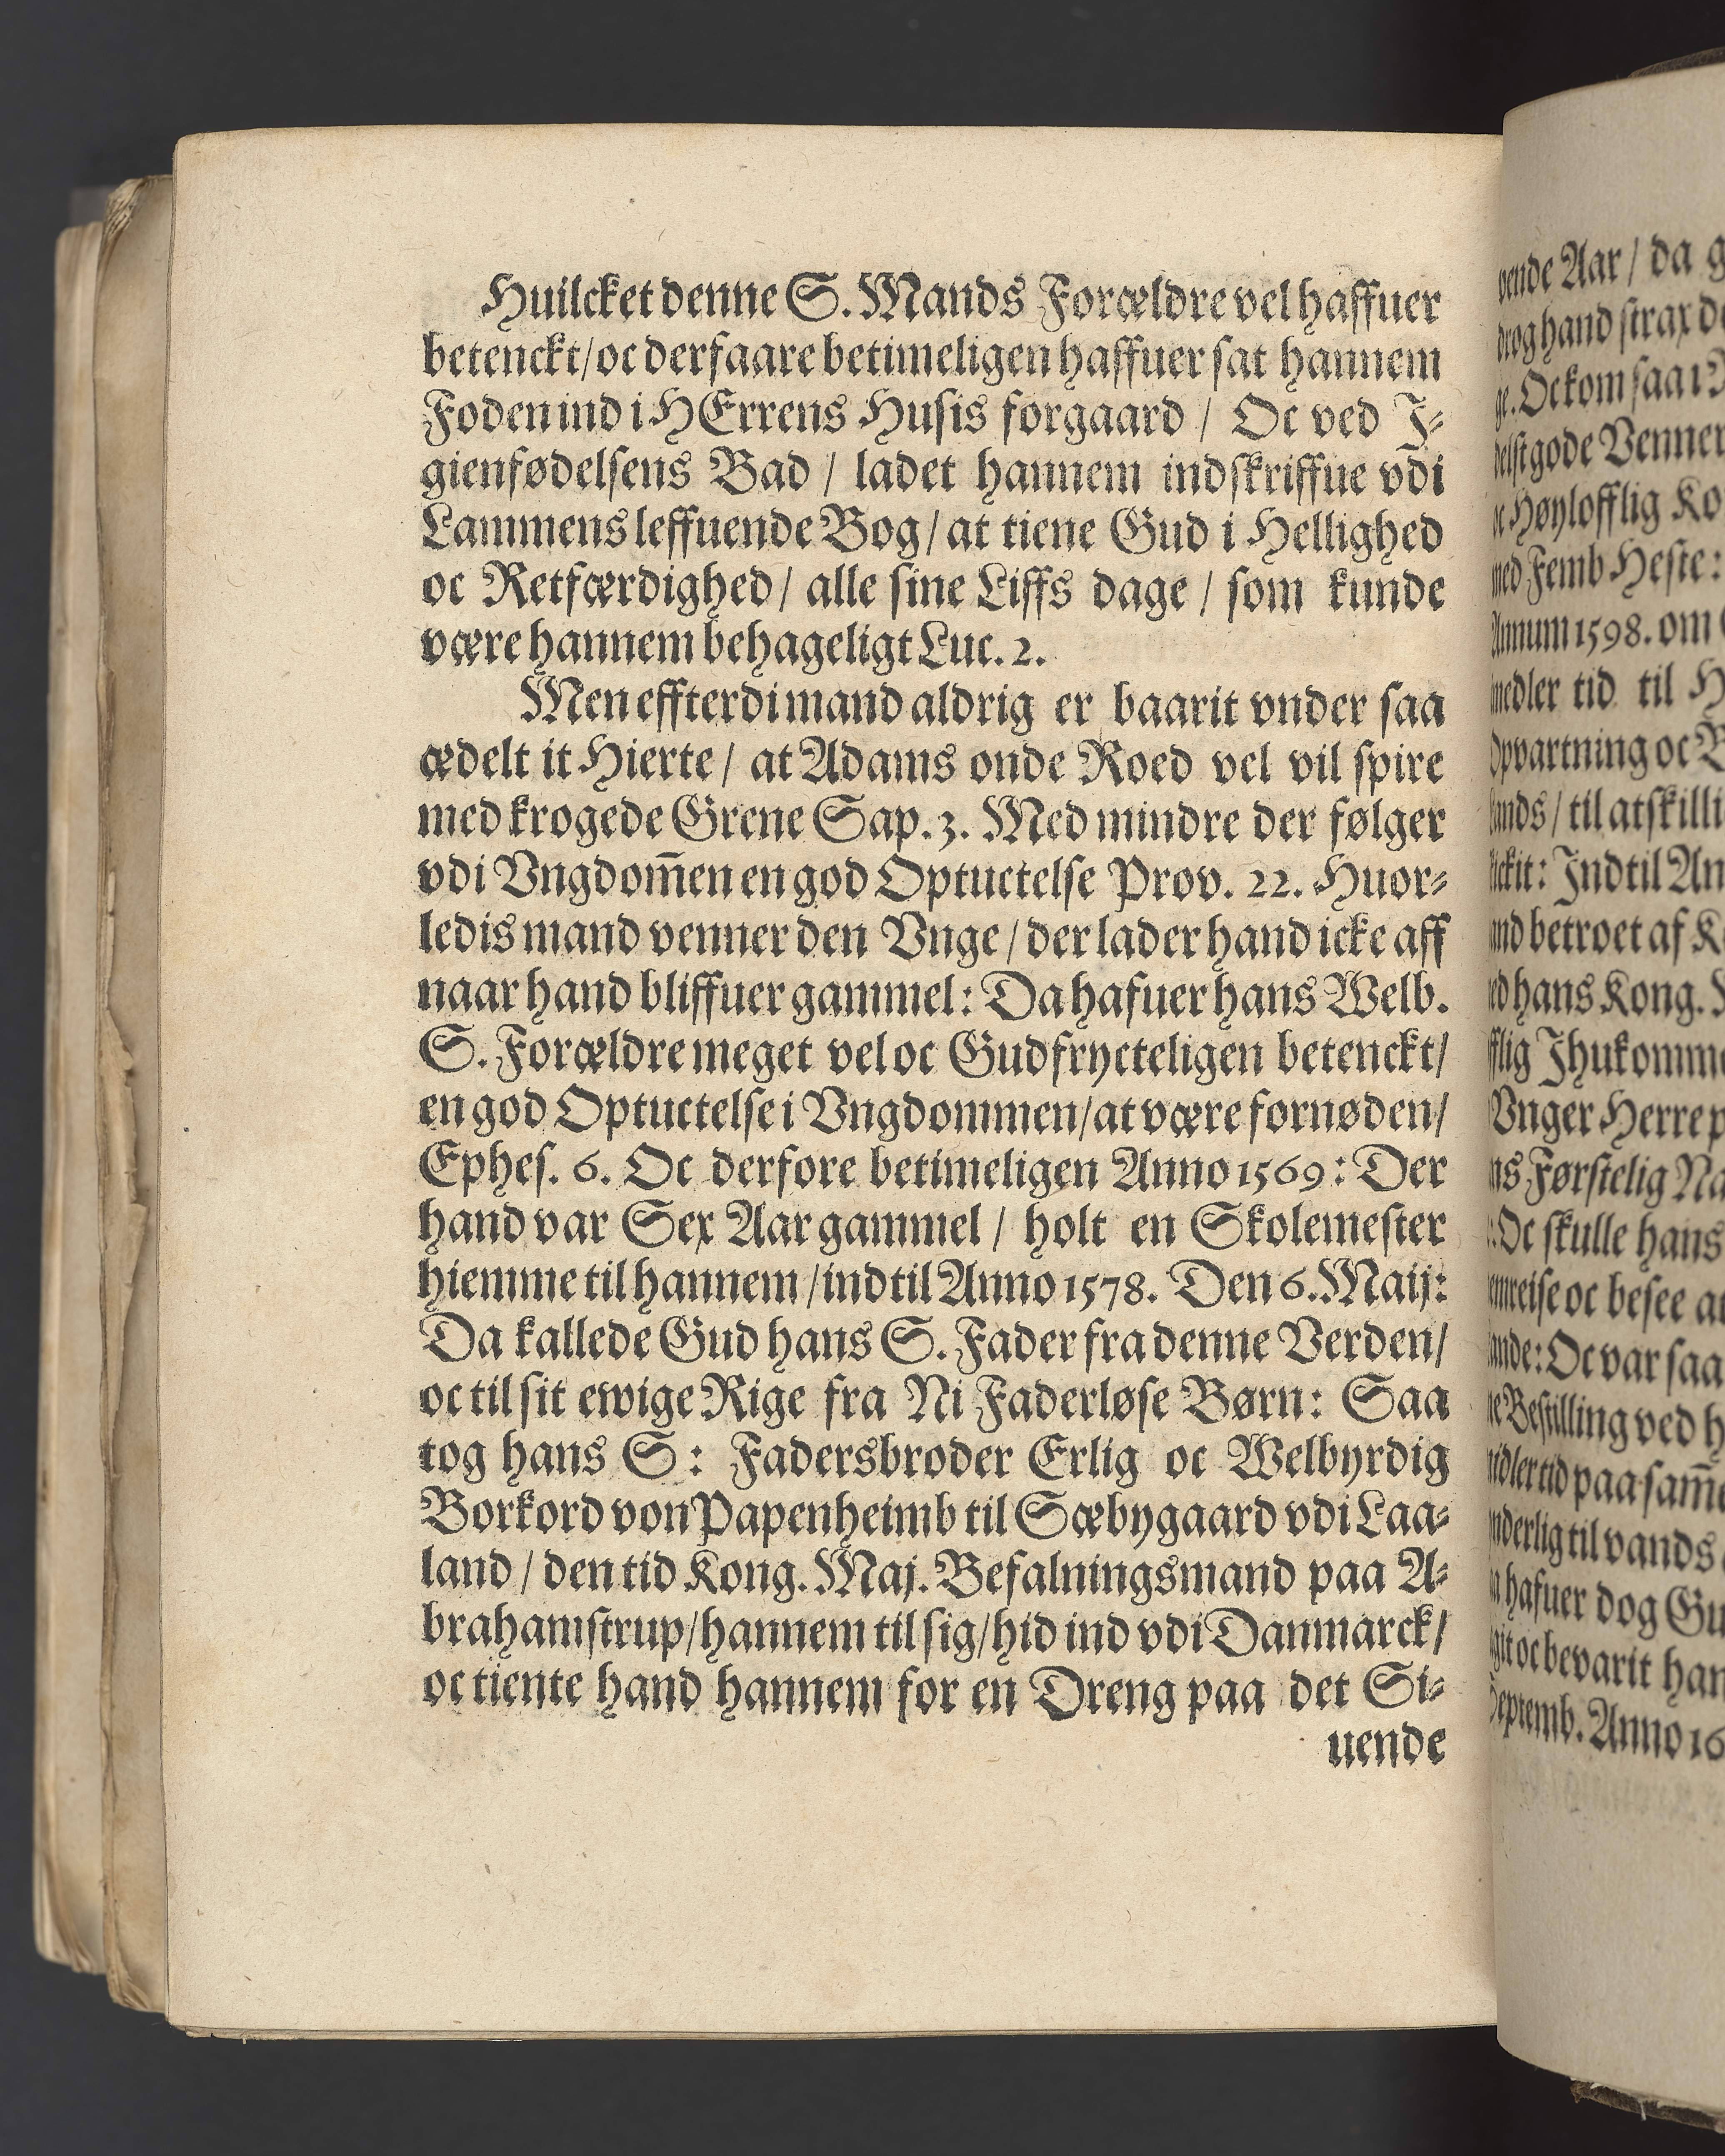 Huilcket denne S. Mands Forældre vel haffuer
betenckt/ oc derfaare betimeligen haffuer sat hannem
Foden ind i HErrens Husis forgaard / Oc ved I-
gienfødelsens Bad / ladet hannem indskriffue vdi
Lammens leffuende Bog/ at tiene Gud i Hellighed
oc Retfærdighed/ alle sine Liffs dage / som kunde
være hannem behageligt Luc. 2.
Men effterdi mand aldrig er baarit vnder saa
ædelt it Hierte / at Adams onde Roed vel vil spire
med krogede Grene Sap. 3. Med mindre der følger
vdi Vngdom̄en en god Optuctelse Prov. 22. Huor-
ledis mand venner den Vnge / der lader hand icke aff
naar hand bliffuer gammel: Da hafuer hans Welb.
S. Forældre meget vel oc Gudfrycteligen betenckt/
en god Optuctelse i Vngdommen/ at være fornøden/
Ephes. 6. Oc derfore betimeligen Anno 1569: Der
hand var Sex Aar gammel / holt en Skolemester
hiemme til hannem / indtil Anno 1578. Den 6. Maij:
Da kallede Gud hans S. Fader fra denne Verden/
oc til sit ewige Rige fra Ni Faderløse Børn: Saa
tog hans S: Fadersbroder Erlig oc Welbyrdig
Borkord von Papenheimb til Sæbygaard vdi Laa-
land / den tid Kong. Maj. Befalningsmand paa A-
brahamstrup/ hannem til sig/ hid ind vdi Danmarck/
oc tiente hand hannem for en Dreng paa det Si-
uende
Aar / da
hand strax
Oc kom saa
gode Venner
Høylofflig
Femb Heste:
1598. om
tid til
oc
/ til
Indtil
betroet af
hans Kong.
Vnger Herre
Førstelig
Oc skulle hans
oc besee
Oc var saa
ved
paa
til vands
hafuer dog
oc bevarit
Anno